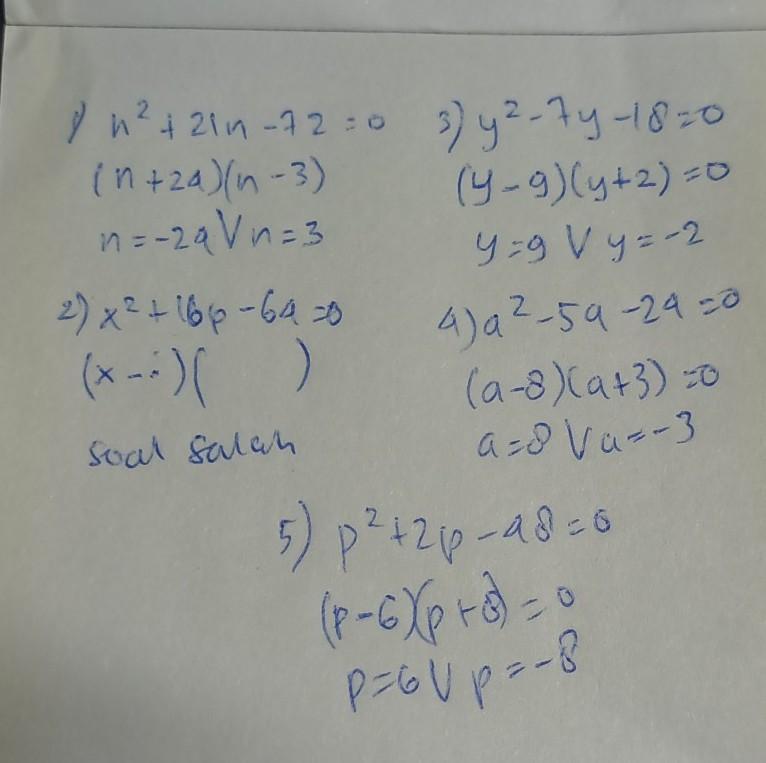 1) n² + 21n - 72 = 0
(n + 24)(n - 3)
n = -24 V n = 3
2) x² + 16p - 64 = 0
(x - :)( )
soal salah
3) y² - 7y - 18 = 0
(y - 9)(y + 2) = 0
y = 9 V y = -2
4) a² - 5a - 24 = 0
(a - 8)(a + 3) = 0
a = 8 V a = -3
5) p² + 2p - 48 = 0
(p - 6)(p + 8) = 0
p = 6 V p = -8